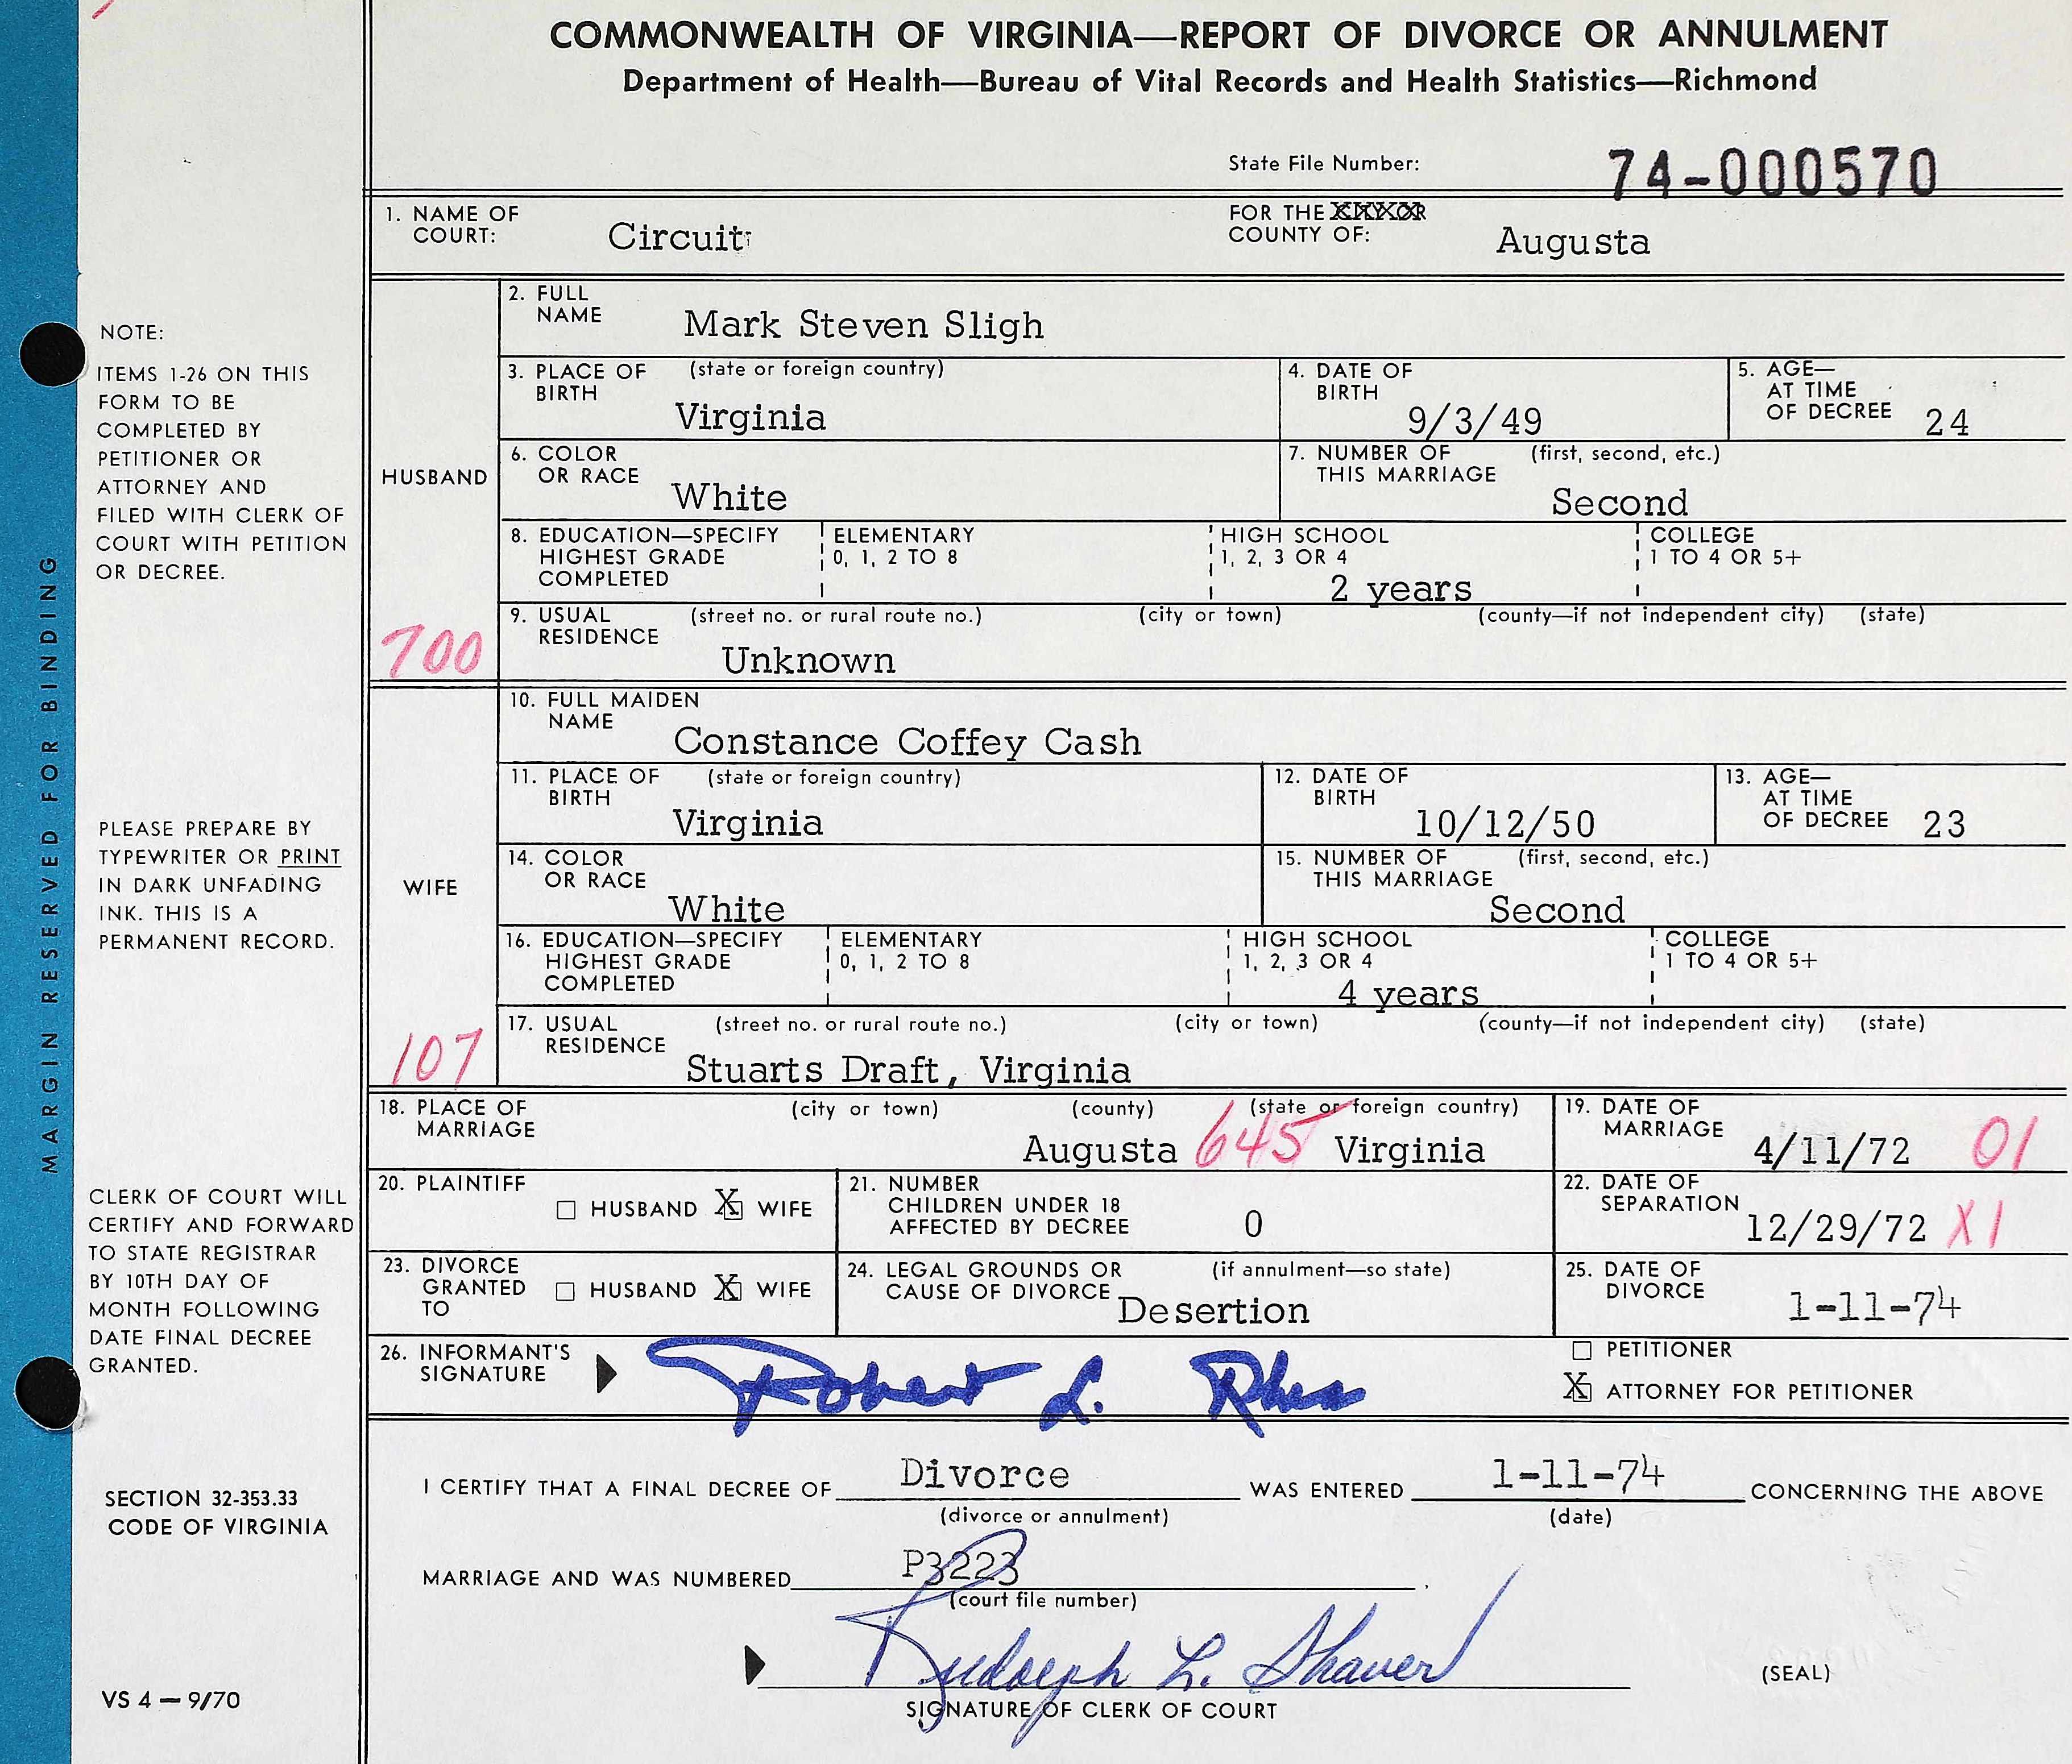 COMMONWEALTH OF VIRGINIA—REPORT OF DIVORCE OR ANNULMENT
Department of Health—Bureau of Vital Records and Health Statistics—Richmond
State File Number: 74-000570
1. NAME OF COURT: Circuit
FOR THE CITY OR COUNTY OF: Augusta
MARGIN RESERVED FOR BINDING
NOTE:
ITEMS 1-26 ON THIS
FORM TO BE
COMPLETED BY
PETITIONER OR
ATTORNEY AND
FILED WITH CLERK OF
COURT WITH PETITION
OR DECREE.
PLEASE PREPARE BY
TYPEWRITER OR PRINT
IN DARK UNFADING
INK. THIS IS A
PERMANENT RECORD.
CLERK OF COURT WILL
CERTIFY AND FORWARD
TO STATE REGISTRAR
BY 10TH DAY OF
MONTH FOLLOWING
DATE FINAL DECREE
GRANTED.
SECTION 32-353.33
CODE OF VIRGINIA
VS 4 — 9/70
HUSBAND
700
2. FULL NAME Mark Steven Sligh
3. PLACE OF BIRTH (state or foreign country) Virginia
4. DATE OF BIRTH 9/3/49
5. AGE— AT TIME OF DECREE 24
6. COLOR OR RACE White
7. NUMBER OF THIS MARRIAGE (first, second, etc.) Second
8. EDUCATION—SPECIFY HIGHEST GRADE COMPLETED
ELEMENTARY 0, 1, 2 TO 8
HIGH SCHOOL 1, 2, 3 OR 4 2 years
COLLEGE 1 TO 4 OR 5+
9. USUAL RESIDENCE (street no. or rural route no.) (city or town) (county—if not independent city) (state)
Unknown
WIFE
107
10. FULL MAIDEN NAME Constance Coffey Cash
11. PLACE OF BIRTH (state or foreign country) Virginia
12. DATE OF BIRTH 10/12/50
13. AGE— AT TIME OF DECREE 23
14. COLOR OR RACE White
15. NUMBER OF THIS MARRIAGE (first, second, etc.) Second
16. EDUCATION—SPECIFY HIGHEST GRADE COMPLETED
ELEMENTARY 0, 1, 2 TO 8
HIGH SCHOOL 1, 2, 3 OR 4 4 years
COLLEGE 1 TO 4 OR 5+
17. USUAL RESIDENCE (street no. or rural route no.) (city or town) (county—if not independent city) (state)
Stuarts Draft, Virginia
18. PLACE OF MARRIAGE (city or town) (county) (state or foreign country)
Augusta 645 Virginia
19. DATE OF MARRIAGE 4/11/72 01
20. PLAINTIFF HUSBAND X WIFE
21. NUMBER CHILDREN UNDER 18 AFFECTED BY DECREE 0
22. DATE OF SEPARATION 12/29/72 X1
23. DIVORCE GRANTED TO HUSBAND X WIFE
24. LEGAL GROUNDS OR CAUSE OF DIVORCE (if annulment—so state) Desertion
25. DATE OF DIVORCE 1-11-74
26. INFORMANT'S SIGNATURE Robert L.
PETITIONER
X ATTORNEY FOR PETITIONER
I CERTIFY THAT A FINAL DECREE OF Divorce WAS ENTERED 1-11-74 CONCERNING THE ABOVE
(divorce or annulment) (date)
MARRIAGE AND WAS NUMBERED P3223.
(court file number)
Rudolph L. Shaver
SIGNATURE OF CLERK OF COURT
(SEAL)